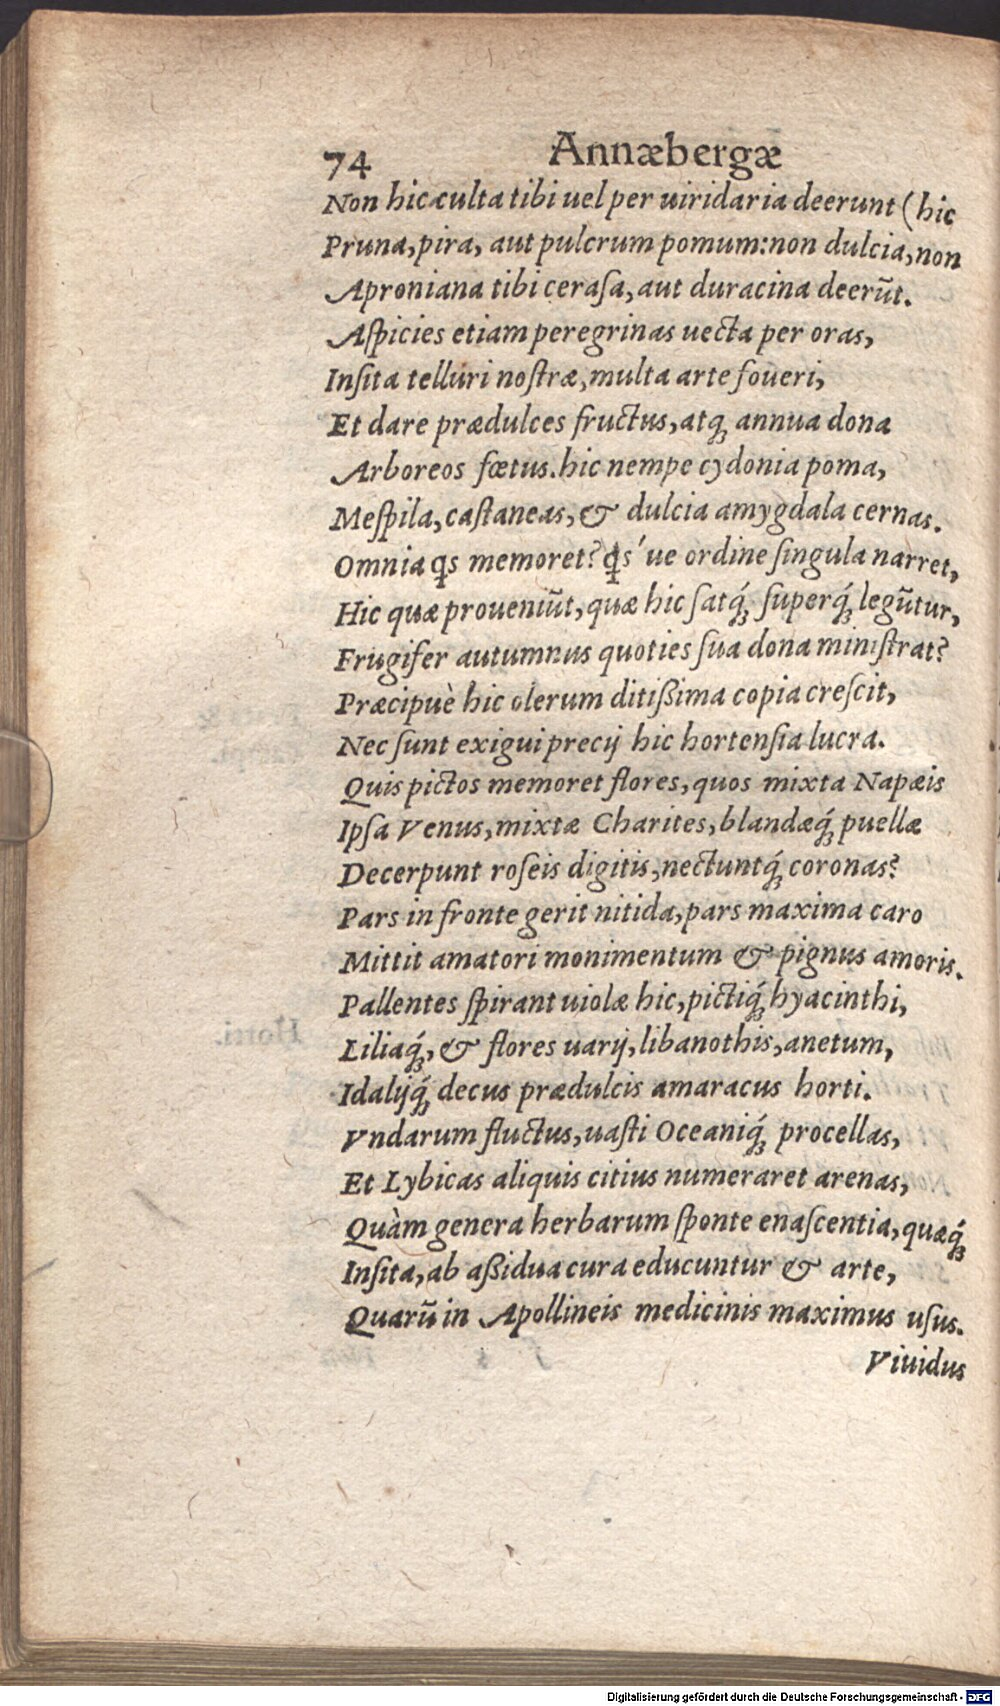 74 Annæbergæ
Non hic culta tibi uel per uiridaria deerunt (hic
Pruna, pira, aut pulcrum pomum: non dulcia, non
Aproniana tibi ceraſa, aut duracina deerūt.
Aſpicies etiam peregrinas uecta per oras,
Inſita telluri noſtræ, multa arte foueri,
Et dare prædulces fructus, atq; annua dona
Arboreos fœtus. hic nempe cydonia poma,
Meſpila, caſtaneas, & dulcia amygdala cernas.
Omnia ꝗs memoret? ꝗs´ue ordine ſingula narret,
Hic quæ proueniūt, quæ hic ſatq́; ſuperq́; legūtur,
Frugifer autumnus quoties ſua dona miniſtrat?
Præcipuè hic olerum ditißima copia creſcit,
Nec ſunt exigui precij hic hortenſia lucra.
Quis pictos memoret flores, quos mixta Napæis
Ipſa Venus, mixtæ Charites, blandæq́; puellæ
Decerpunt roſeis digitis, nectuntq́; coronas?
Pars in fronte gerit nitida, pars maxima caro
Mittit amatori monimentum & pignus amoris.
Pallentes ſpirant uiolæ hic, pictiq́; hyacinthi,
Liliaq́;, & flores uarij, libanothis, anetum,
Idalijq́; decus prædulcis amaracus horti.
Vndarum fluctus, uaſti Oceaniq́; procellas,
Et Lybicas aliquis citius numeraret arenas,
Quàm genera herbarum ſponte enaſcentia, quæq́;
Inſita, ab aßidua cura educuntur & arte,
Quarū in Apollineis medicinis maximus uſus.
Viuidus
Digitalisierung gefördert durch die Deutsche Forschungsgemeinschaft - DFG